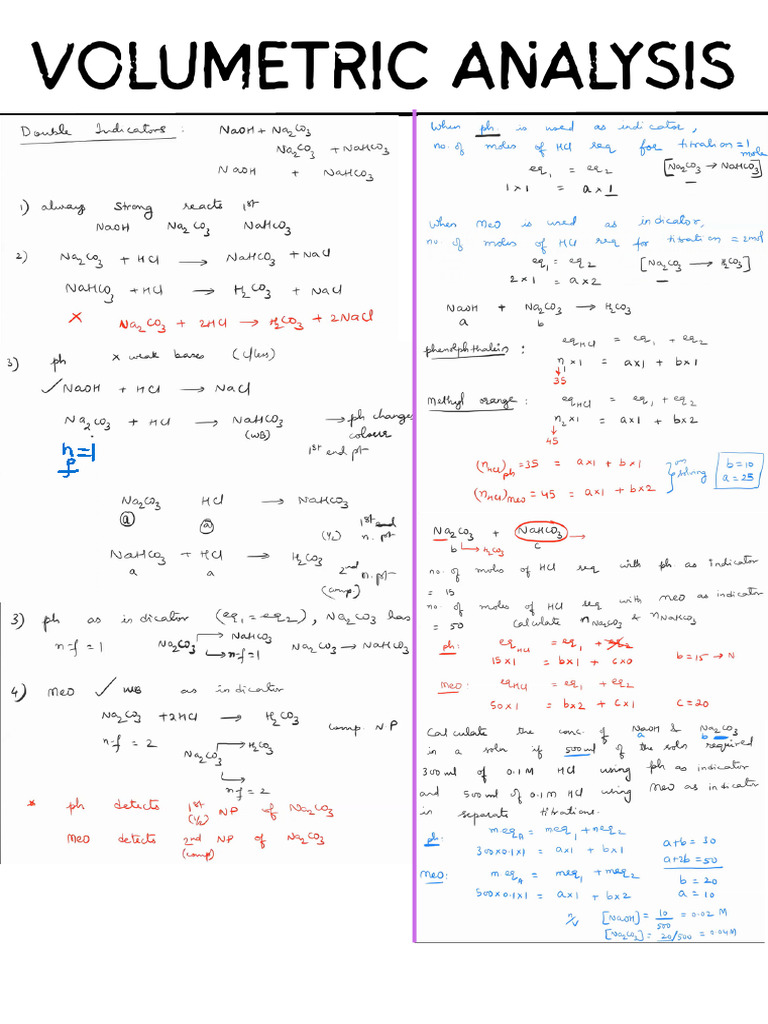 VOLUMETRIC ANALYSIS
Double Indicators : NaOH + Na2CO3
Na2CO3 + NaHCO3
NaOH + NaHCO3
1) always strong reacts 1st
NaOH Na2CO3 NaHCO3
2) Na2CO3 + HCl → NaHCO3 + NaCl
NaHCO3 + HCl → H2CO3 + NaCl
× Na2CO3 + 2HCl → H2CO3 + 2NaCl
3) ph × weak bases (c/less)
✓ NaOH + HCl → NaCl
Na2CO3 + HCl → NaHCO3 → ph changes
(WB) colour
nf=1 1st end pt
Na2CO3 HCl → NaHCO3
a a (1/2) 1st end n.pt
NaHCO3 + HCl → H2CO3
a a 2nd n.pt
(comp)
3) ph as indicator (eq1 = eq2), Na2CO3 has
n-f = 1 Na2CO3 → NaHCO3 Na2CO3 → NaHCO3
→ n-f = 1
4) MeO ✓ WB as indicator
Na2CO3 + 2HCl → H2CO3 comp N.P
n-f = 2 Na2CO3 → H2CO3
→ n-f = 2
* ph detects 1st (1/2) NP of Na2CO3
MeO detects 2nd NP of Na2CO3
(comp)
When ph. is used as indicator,
no. of moles of HCl req for titration = 1 mole
eq1 = eq2 [Na2CO3 → NaHCO3]
1 x 1 = a x 1
When MeO is used as indicator,
no. of moles of HCl req for titration = 2mol
eq1 = eq2 [Na2CO3 → H2CO3]
2 x 1 = a x 2
NaOH + Na2CO3 → H2CO3
a b
phenolphthalein : eqHCl = eq1 + eq2
n1 x 1 = a x 1 + b x 1
35
Methyl orange : eqHCl = eq1 + eq2
n2 x 1 = a x 1 + b x 2
45
(nHCl)ph = 35 = a x 1 + b x 1 } on solving b = 10
(nHCl)MeO = 45 = a x 1 + b x 2 a = 25
Na2CO3 + NaHCO3 →
b → H2CO3 c
no. of moles of HCl req with ph. as indicator
= 15
no. of moles of HCl req with MeO as indicator
= 50 Calculate nNa2CO3 & nNaHCO3
ph: eqHCl = eq1 + eq2
15 x 1 = b x 1 + c x 0 b = 15 → N
MeO: eqHCl = eq1 + eq2
50 x 1 = b x 2 + c x 1 c = 20
Calculate the conc. of NaOH & Na2CO3
a b
in a soln if 500 ml of the soln required
300 ml of 0.1M HCl using ph as indicator
and 500 ml of 0.1 M HCl using MeO as indicator
in separate titrations.
ph: m.eqA = meq1 + meq2
300 x 0.1 x 1 = a x 1 + b x 1 a+b = 30
MeO: m.eqA = meq1 + meq2 a+2b = 50
500 x 0.1 x 1 = a x 1 + b x 2 b = 20
a = 10
n/V [NaOH] = 10/500 = 0.02 M
[Na2CO3] = 20/500 = 0.04M